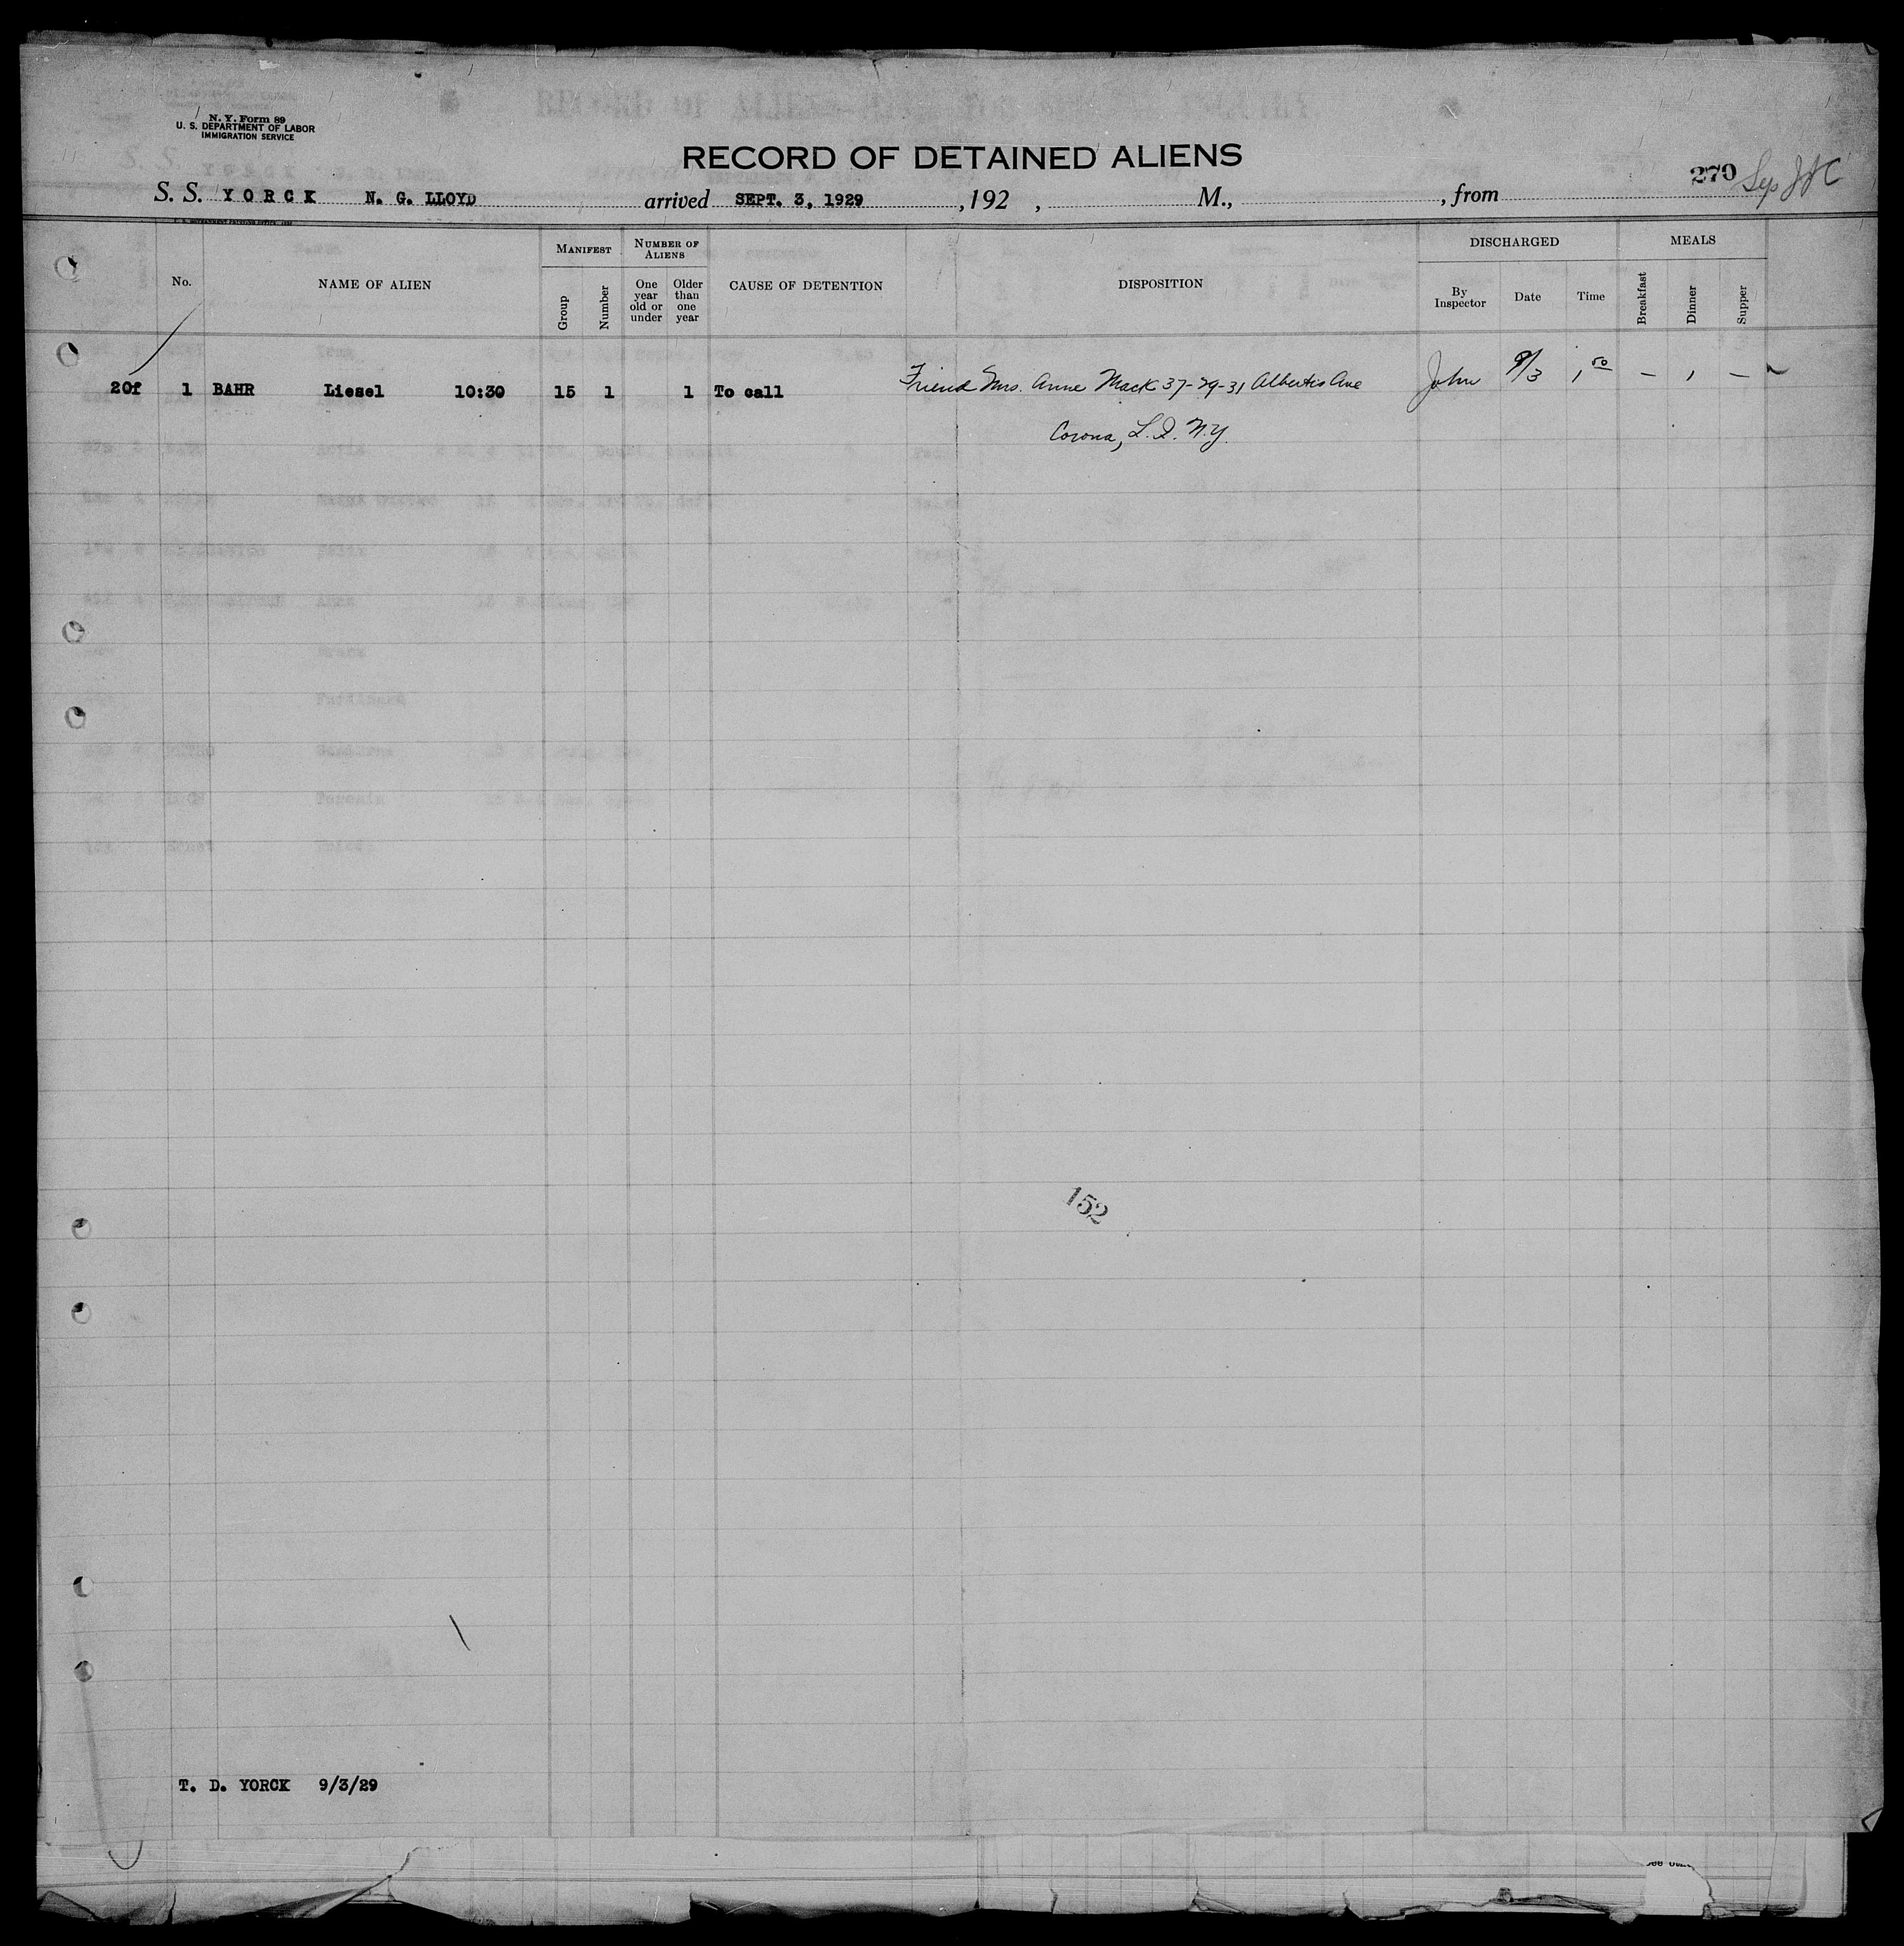 N. Y. Form 89
U. S. DEPARTMENT OF LABOR
IMMIGRATION SERVICE
RECORD OF DETAINED ALIENS
270
S. S. YORCK N. G. LLOYD arrived SEPT. 3, 1929 , 192 , M., , from
No. NAME OF ALIEN MANIFEST NUMBER OF ALIENS CAUSE OF DETENTION DISPOSITION DISCHARGED MEALS
Group Number One year old or under Older than one year By Inspector Date Time Breakfast Dinner Supper
20f 1 BAHR Liesel 10:30 15 1 1 To call Friend Mrs. Anne Mack 37-29-31 Albertis Ave John 9/3 1 50 – 1 –
Corona, L.I. N.Y.
152
T. D. YORCK 9/3/29